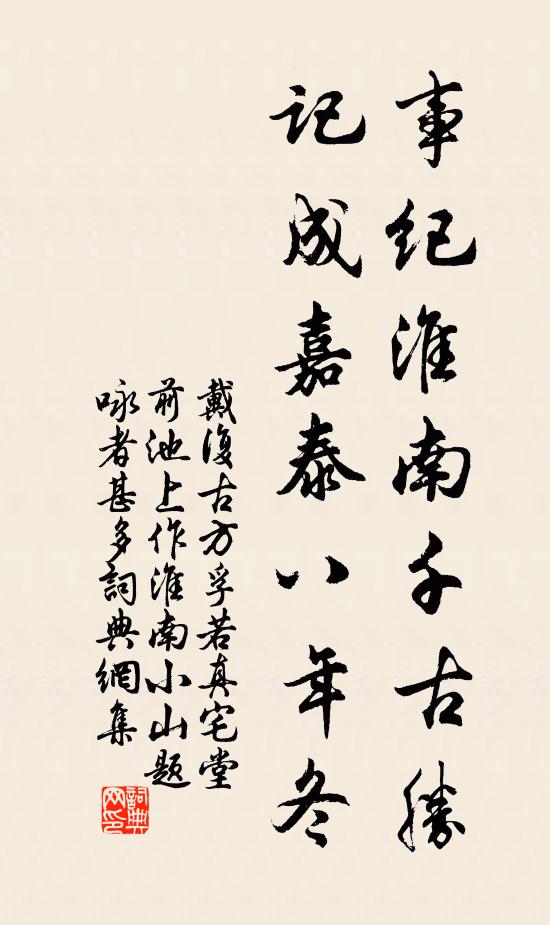 事纪淮南千古勝
记成嘉泰八年冬
戴復古方孚若真宅堂
前池上作淮南小山题
咏者甚多詞典網集
詞典网印